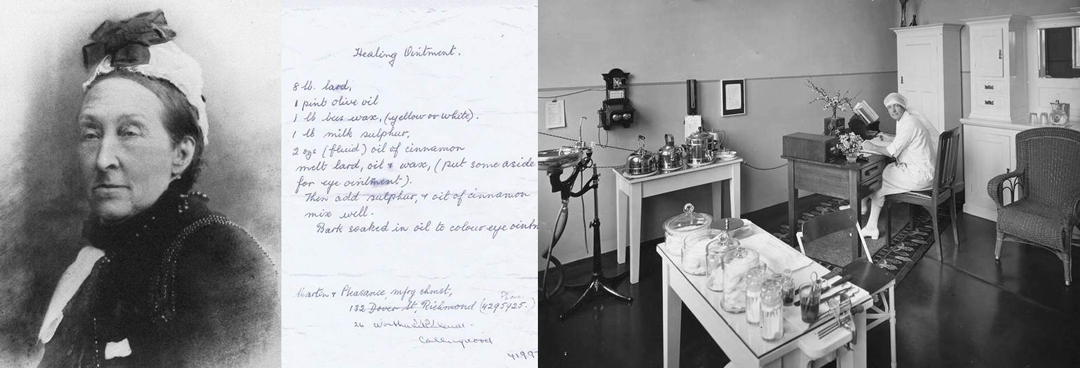 Healing Ointment.
8 lb. lard,
1 pint olive oil
1 lb bees wax, (yellow or white).
1 lb milk sulphur,
2 ozs (fluid) oil of cinnamon
melt lard, oil & wax, (put some aside
for eye ointment).
Then add sulphur, & oil of cinnamon
mix well.
Bark soaked in oil to colour eye ointm
Martin & Pleasance, mfrg chmst,
132 Dover St, Richmond (4295925.)
26
Collingwood